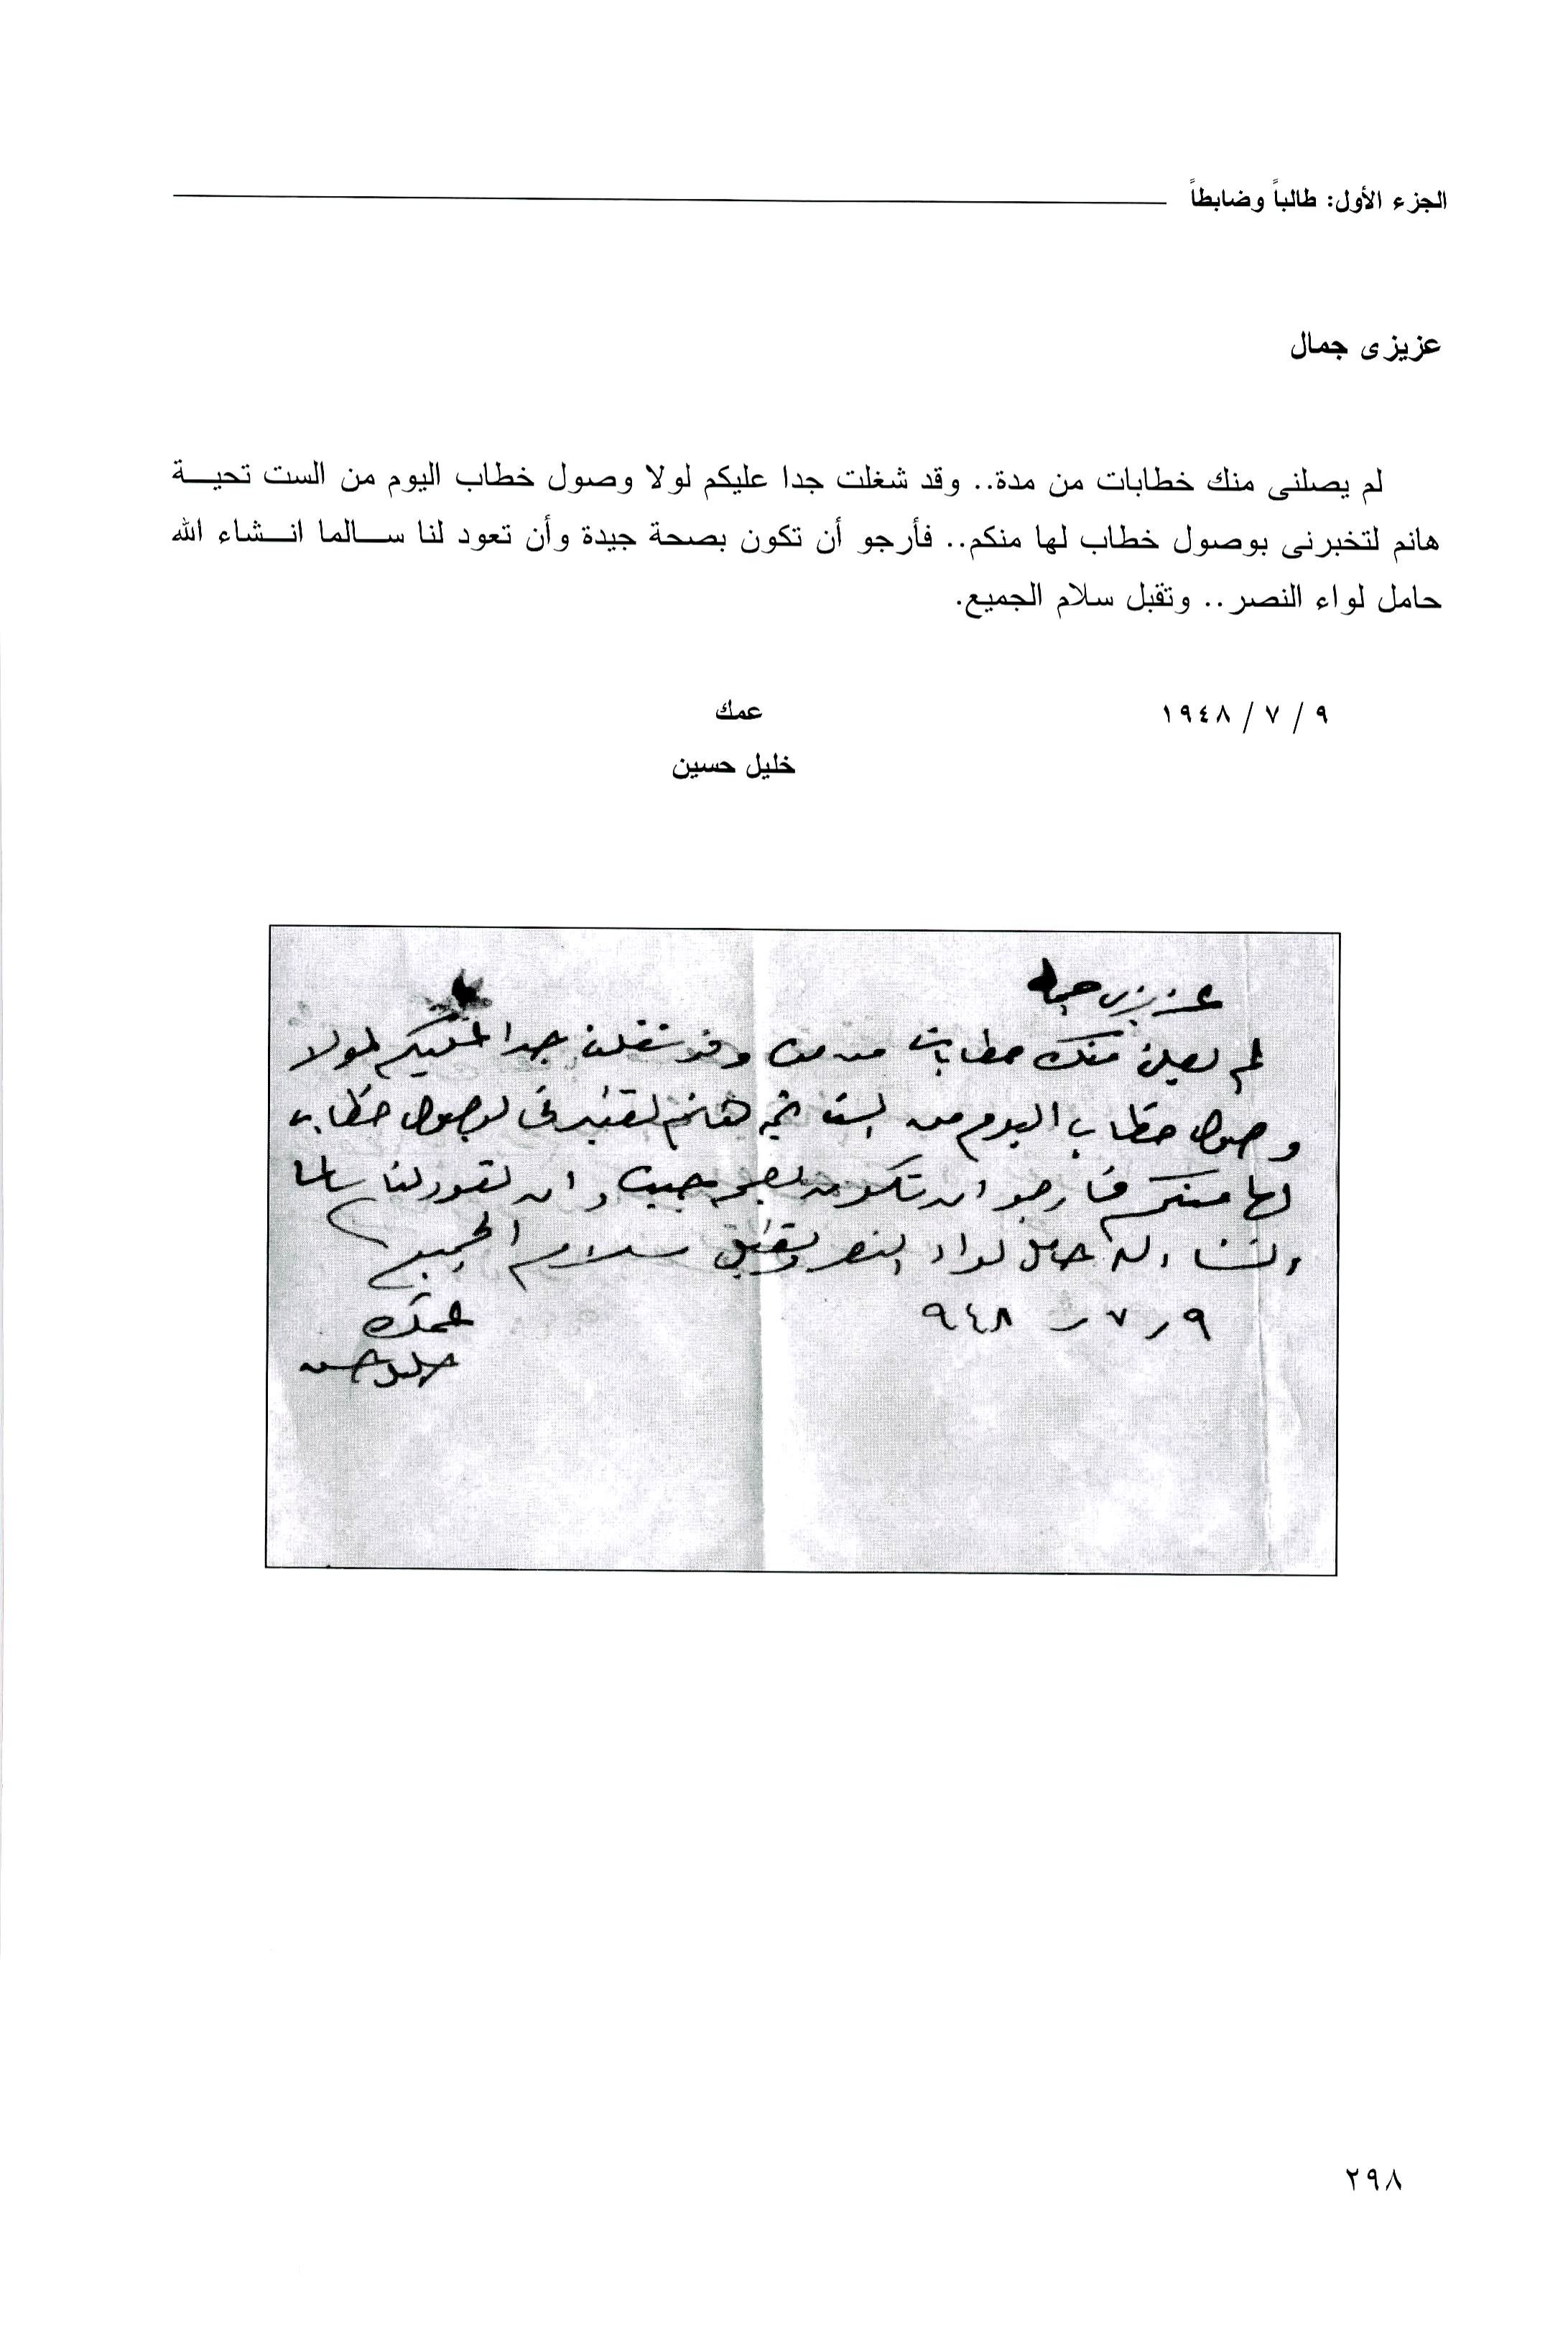 الجزء الأول: طالباً وضابطاً
عزيزى جمال
لم يصلنى منك خطابات من مدة.. وقد شغلت جدا عليكم لولا وصول خطاب اليوم من الست تحيـــة
هانم لتخبرنى بوصول خطاب لها منكم.. فأرجو أن تكون بصحة جيدة وأن تعود لنا ســالما انــشاء الله
حامل لواء النصر.. وتقبل سلام الجميع.
٩ / ٧ / ١٩٤٨
عمك
خليل حسين
عزيزى جمال
لم يصلنى منك خطابات من مدة وقد شغلت جدا عليكم لولا
وصول خطاب اليوم من الست تحية هانم لتخبرنى بوصول خطاب
لها منكم فأرجو ان تكون بصحة جيدة وان تعود لنا سالما
انشاء الله حامل لواء النصر وتقبل سلام الجميع
٩ ر ٧ ر ٩٤٨
عمك
خليل حسين
٢٩٨